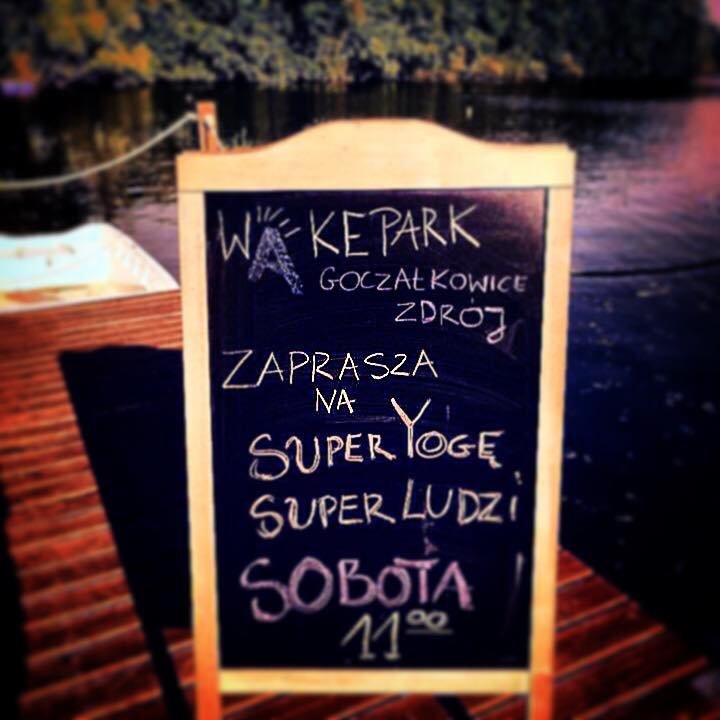 WAKEPARK
GOCZAŁKOWICE
ZDRÓJ
ZAPRASZA
NA
SUPER YOGĘ
SUPER LUDZI
SOBOTA
11⁰⁰